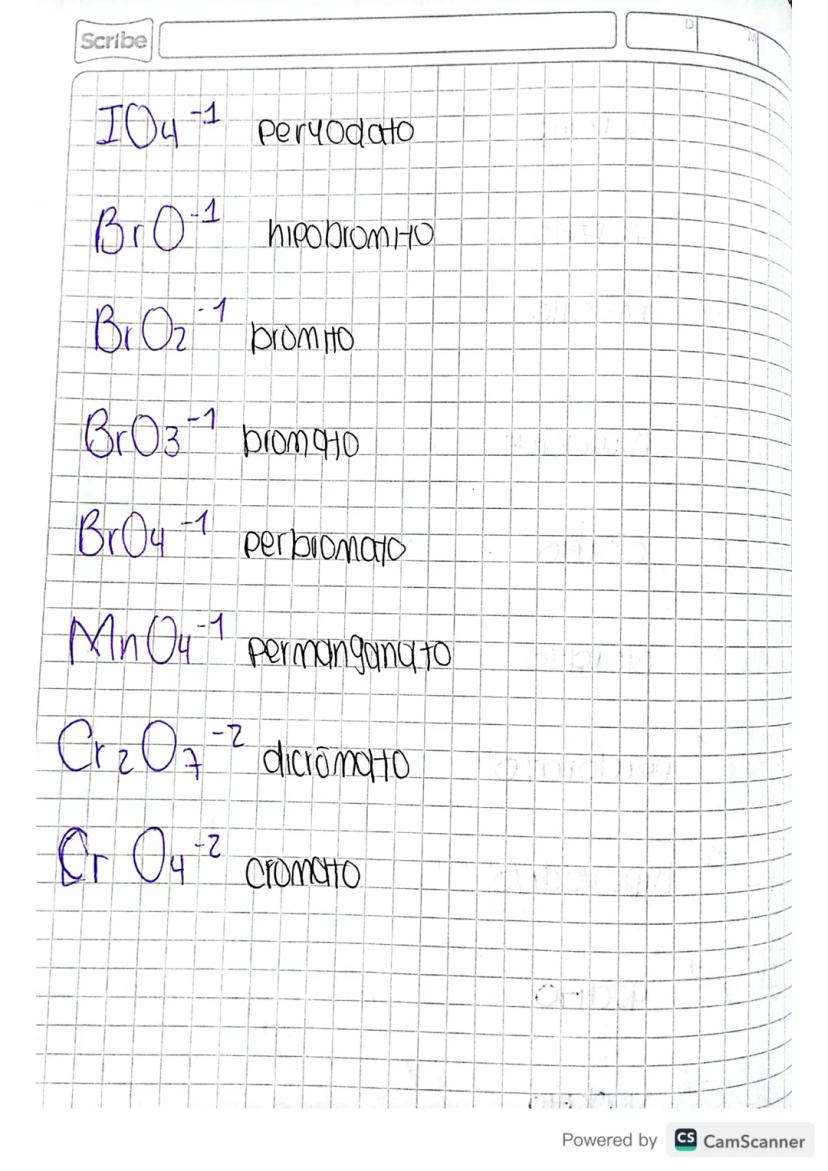 Scribe
D
M
IO4⁻¹ peryodato
BrO⁻¹ hipobromito
BrO2⁻¹ bromito
BrO3⁻¹ bromato
BrO4⁻¹ perbromato
MnO4⁻¹ permanganato
Cr2O7⁻² dicromato
CrO4⁻² cromato
Powered by CS CamScanner